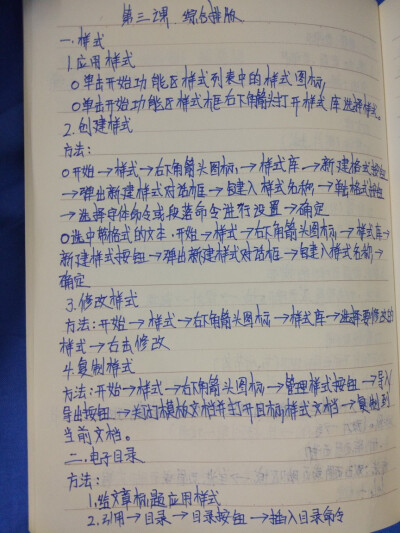 第三课 综合排版
一.样式
1.应用样式
○单击开始功能区样式列表中的样式图标,
○单击开始功能区样式框右下角箭头打开样式库选择样式。
2.创建样式
方法:
○开始→样式→右下角箭头图标→样式库→新建格式按钮
→弹出新建样式对话框→自建入样式名称→单击格式按钮
→选择字体命令或段落命令进行设置→确定
○选中带格式的文本.开始→样式→右下角箭头图标→样式库→
新建样式按钮→弹出新建样式对话框→自建入样式名称→
确定
3.修改样式
方法:开始→样式→右下角箭头图标→样式库→选择要修改的
样式→右击修改
4.复制样式
方法:开始→样式→右下角箭头图标→管理样式按钮→导入/
导出按钮→关闭模板文档并打开目标样式文档→复制到
当前文档。
二.电子目录
方法:
1.给文章标题应用样式
2.引用→目录→目录按钮→插入目录命令